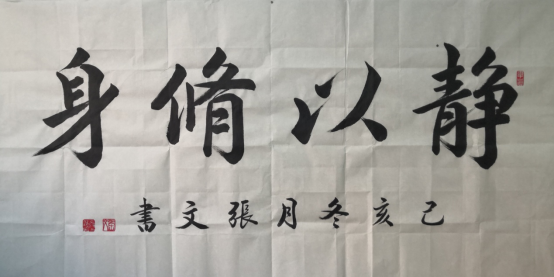 静以脩身
己亥冬月張文書